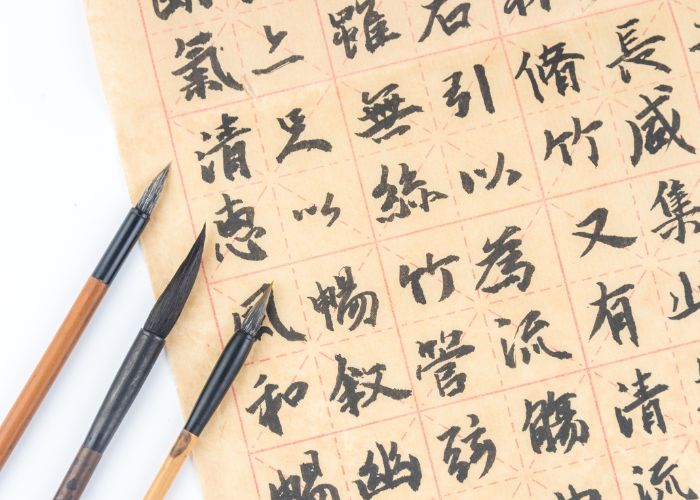 長咸集
脩竹又有清流
右引以為流觴
雖無絲竹管弦
亦足以暢叙幽
氣清惠風和暢